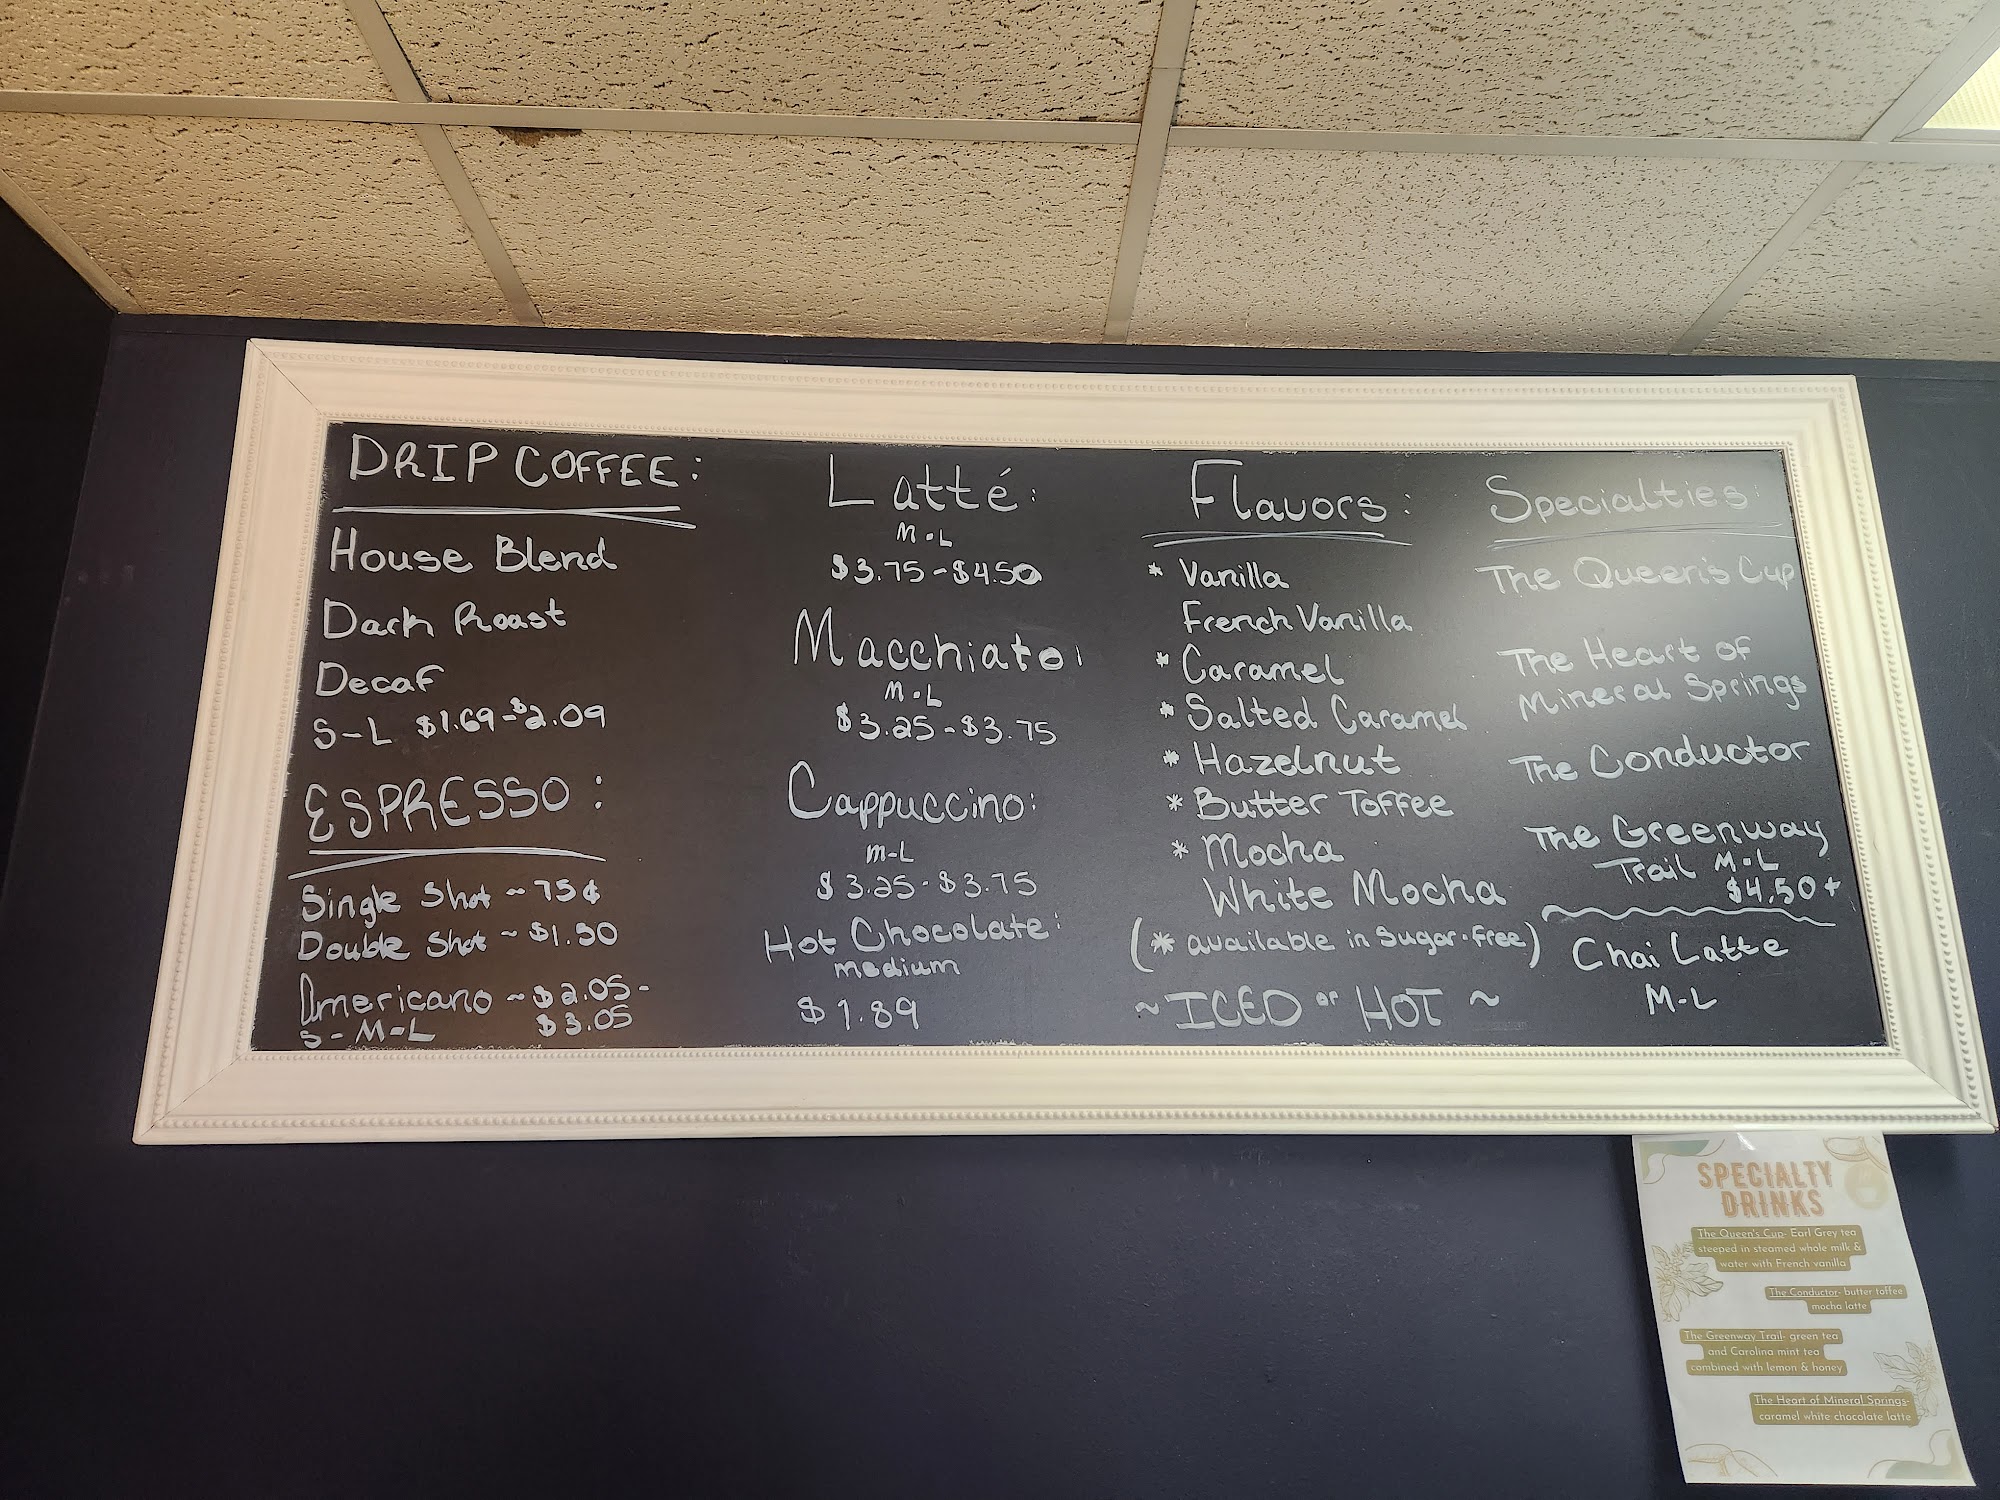 DRIP COFFEE:
House Blend
Dark Roast
Decaf
S-L $1.69-$2.09
ESPRESSO:
Single Shot ~ 75¢
Double Shot ~ $1.50
Americano ~ $2.05-
S-M-L $3.05
Latté:
M-L
$3.75-$4.50
Macchiato:
M-L
$3.25-$3.75
Cappuccino:
M-L
$3.25-$3.75
Hot Chocolate:
medium
$1.89
Flavors:
* Vanilla
French Vanilla
* Caramel
* Salted Caramel
* Hazelnut
* Butter Toffee
* Mocha
White Mocha
(* available in Sugar-free)
~ ICED or HOT ~
Specialties:
The Queen's Cup
The Heart of
Mineral Springs
The Conductor
The Greenway
Trail M-L
$4.50+
Chai Latte
M-L
SPECIALTY
DRINKS
The Queen's Cup- Earl Grey tea
steeped in steamed whole milk &
water with French vanilla
The Conductor- butter toffee
mocha latte
The Greenway Trail- green tea
and Carolina mint tea
combined with lemon & honey
The Heart of Mineral Springs-
caramel white chocolate latte